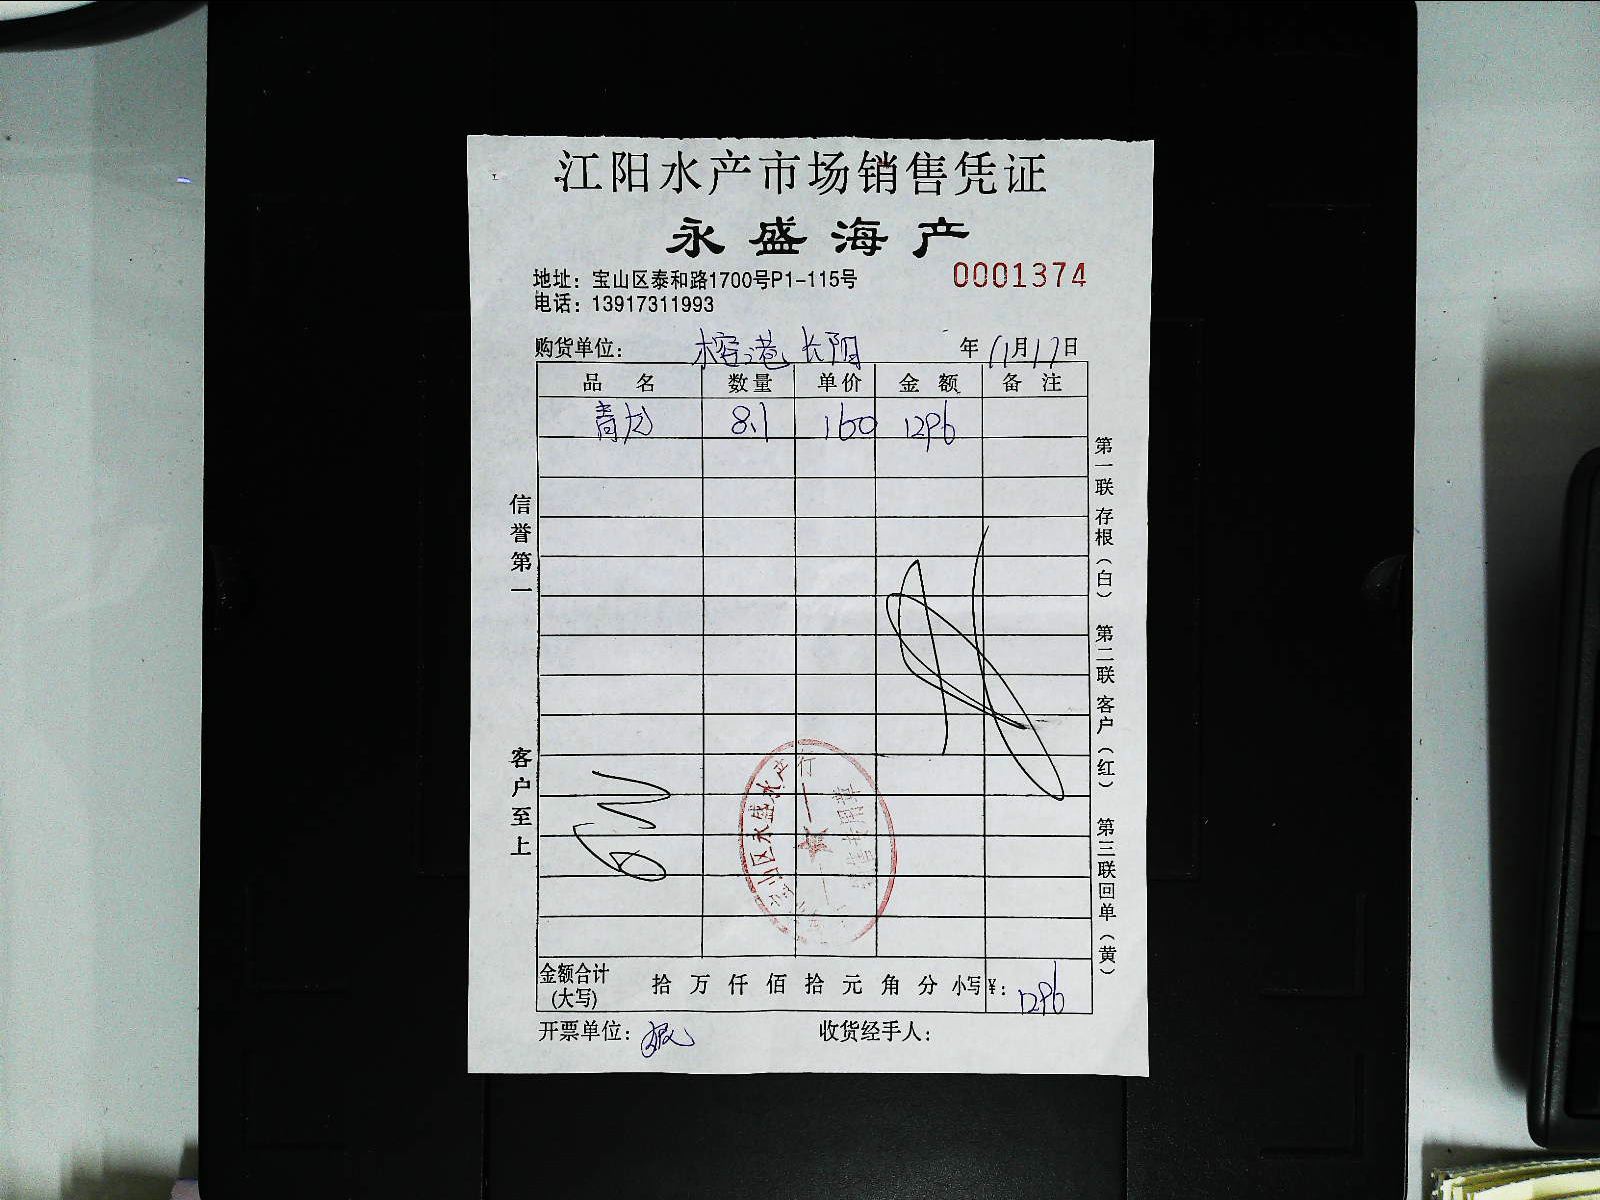 江阳水产市场销售凭证
永盛海产
0001374
地址：宝山区泰和路1700号P1-115号
电话：13917311993
购货单位： 榕港 长阳 年 11月17日
品名 数量 单价 金额 备注
青龙 8.1 160 1296
信誉第一
客户至上
第一联存根（白） 第二联客户（红） 第三联回单（黄）
宝山区永盛水产行
专用章
金额合计(大写) 拾万仟佰拾元角分 小写¥： 1296
开票单位：
收货经手人：